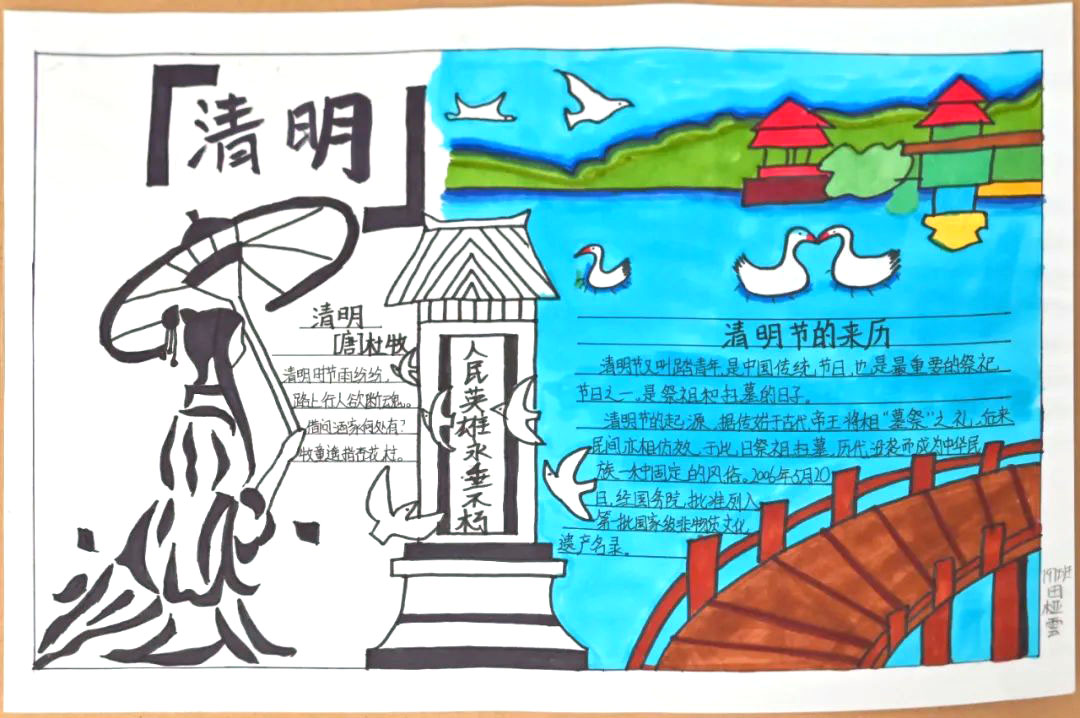 「清明」
清明
[唐]杜牧
清明时节雨纷纷，
路上行人欲断魂。
借问酒家何处有？
牧童遥指杏花村。
人民英雄永垂不朽
清明节的来历
清明节又叫踏青年，是中国传统，节日，也是最重要的祭祀，
节日之一，是祭祖和扫墓的日子。
清明节的起源，据传始于古代帝王将相"墓祭"之礼，后来
民间亦相仿效，于此日祭祖扫墓，历代沿袭而成为中华民
族一种固定的风俗。2006年5月20
日，经国务院，批准列入
第一批国家级非物质文化
遗产名录。
197班
田桠雲